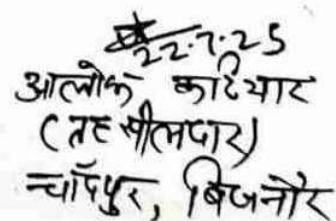 22.7.25
आलोक कटियार
(तहसीलदार)
चाँदपुर, बिजनौर